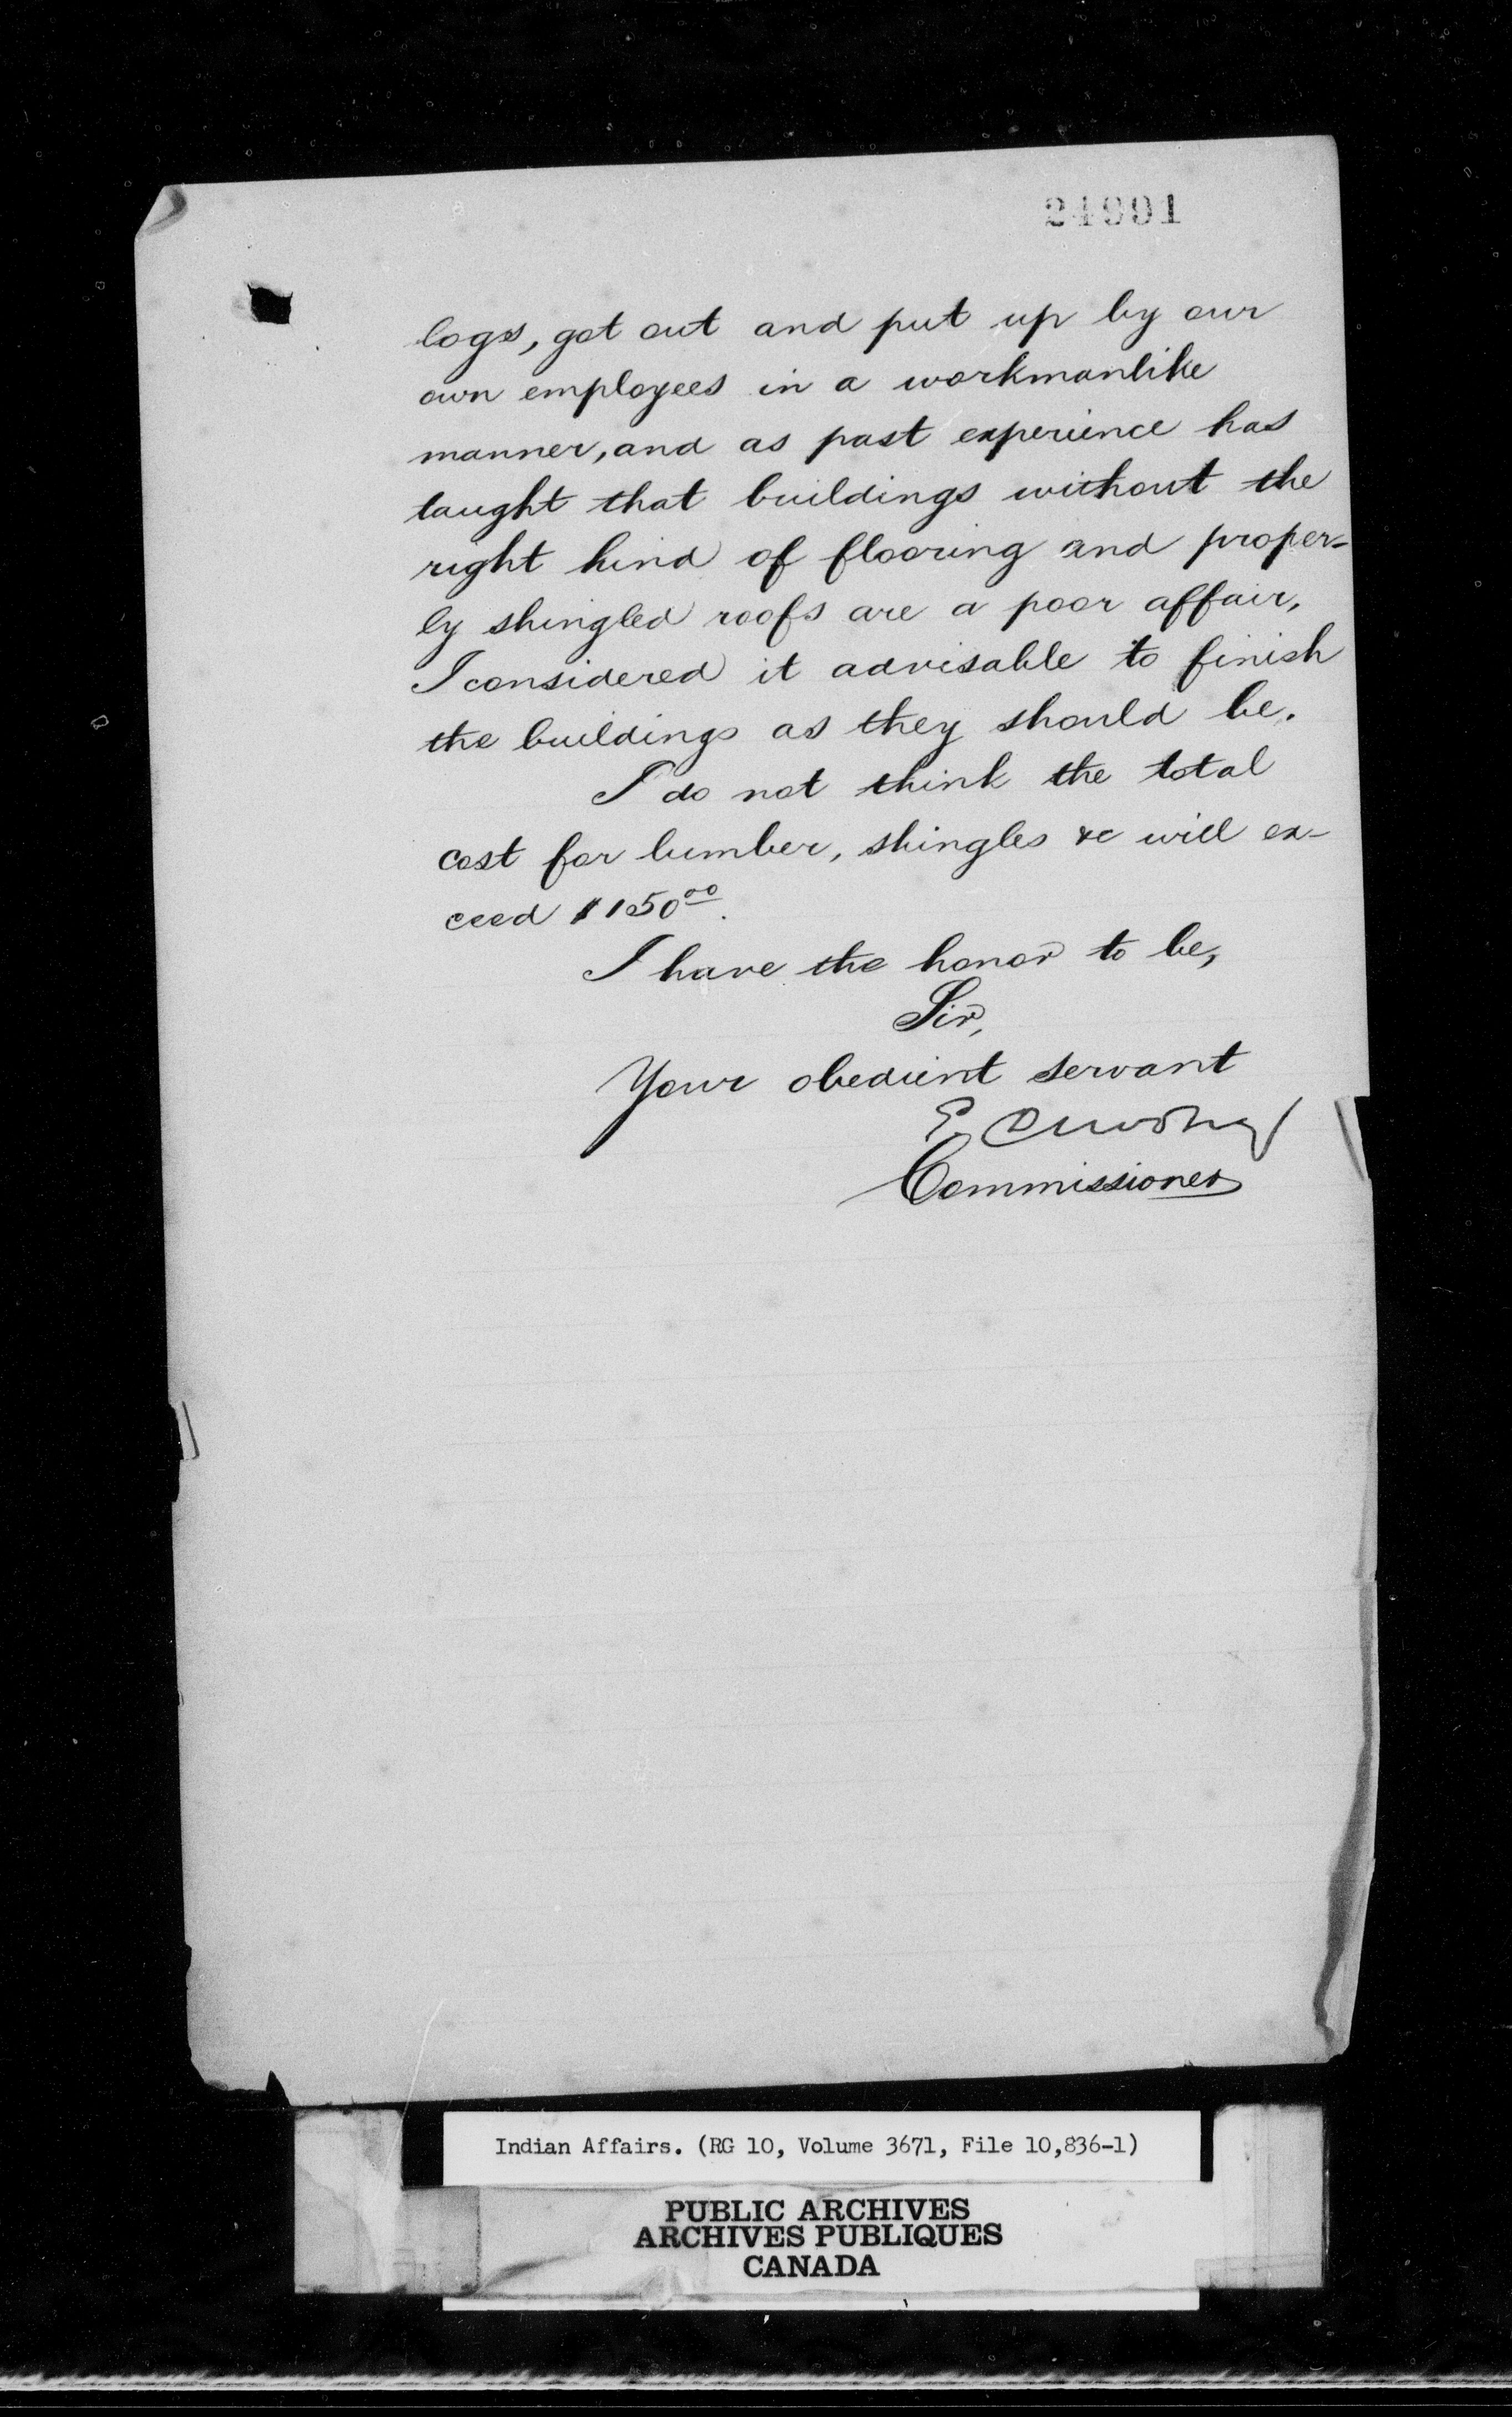 24991
logs, got out and put up by our
own employees in a workmanlike
manner, and as past experience has
taught that buildings without the
right kind of flooring and proper=
ly shingled roofs are a poor affair,
I considered it advisable to finish
the buildings as they should be.
I do not think the total
cost for lumber, shingles &c will ex-
ceed $150.00.
I have the honor to be,
Sir,
Your obedient servant
E
Commissioner
Indian Affairs. (RG 10, Volume 3671, File 10,836-1)
PUBLIC ARCHIVES
ARCHIVES PUBLIQUES
CANADA